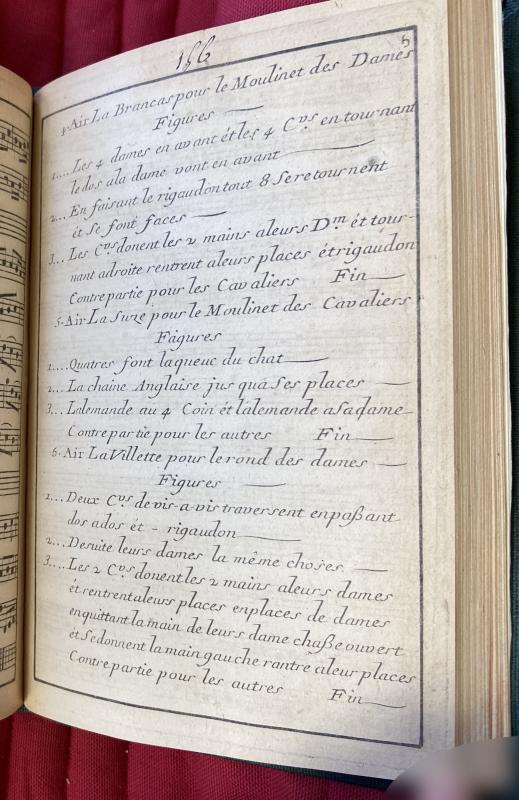 156
5
4. Air La Brancas pour le Moulinet des Dames
Figures
1.... Les 4 dames en avant ét les 4 C.vs en tournant
le dos a la dame vont en avant
2... En faisant le rigaudon tout 8 se retournent
ét se font faces
3... Les C.vs donent les 2 mains a leurs D.m ét tour-
nant a droite rentrent a leurs places ét rigaudon
Contre partie pour les Cavaliers Fin
5. Air La Suze pour le Moulinet des Cavaliers
Figures
1.... Quatres font la queue du chat
2... La chaine Anglaise jus qua ses places
3... Lalemande au 4 Coin ét lalemande a sa dame
Contre partie pour les autres Fin
6. Air La Villette pour le rond des dames
Figures
1... Deux C.vs de vis-a-vis traversent en paßant
dos a dos ét - rigaudon
2... De suite leurs dames la même choses
3.... Les 2 C.vs donent les 2 mains a leurs dames
ét rentrent a leurs places en places de dames
en quittant la main de leurs dame chaße ouvert
ét se donnent la main gauche rantre a leur places
Contre partie pour les autres Fin